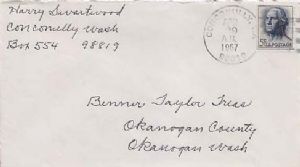 Harry Swartwood
Conconully Wash
Box 554 98819
A.M.
1967
5¢ U.S. POSTAGE
Benner Taylor Treas
Okanogan County
Okanogan Wash